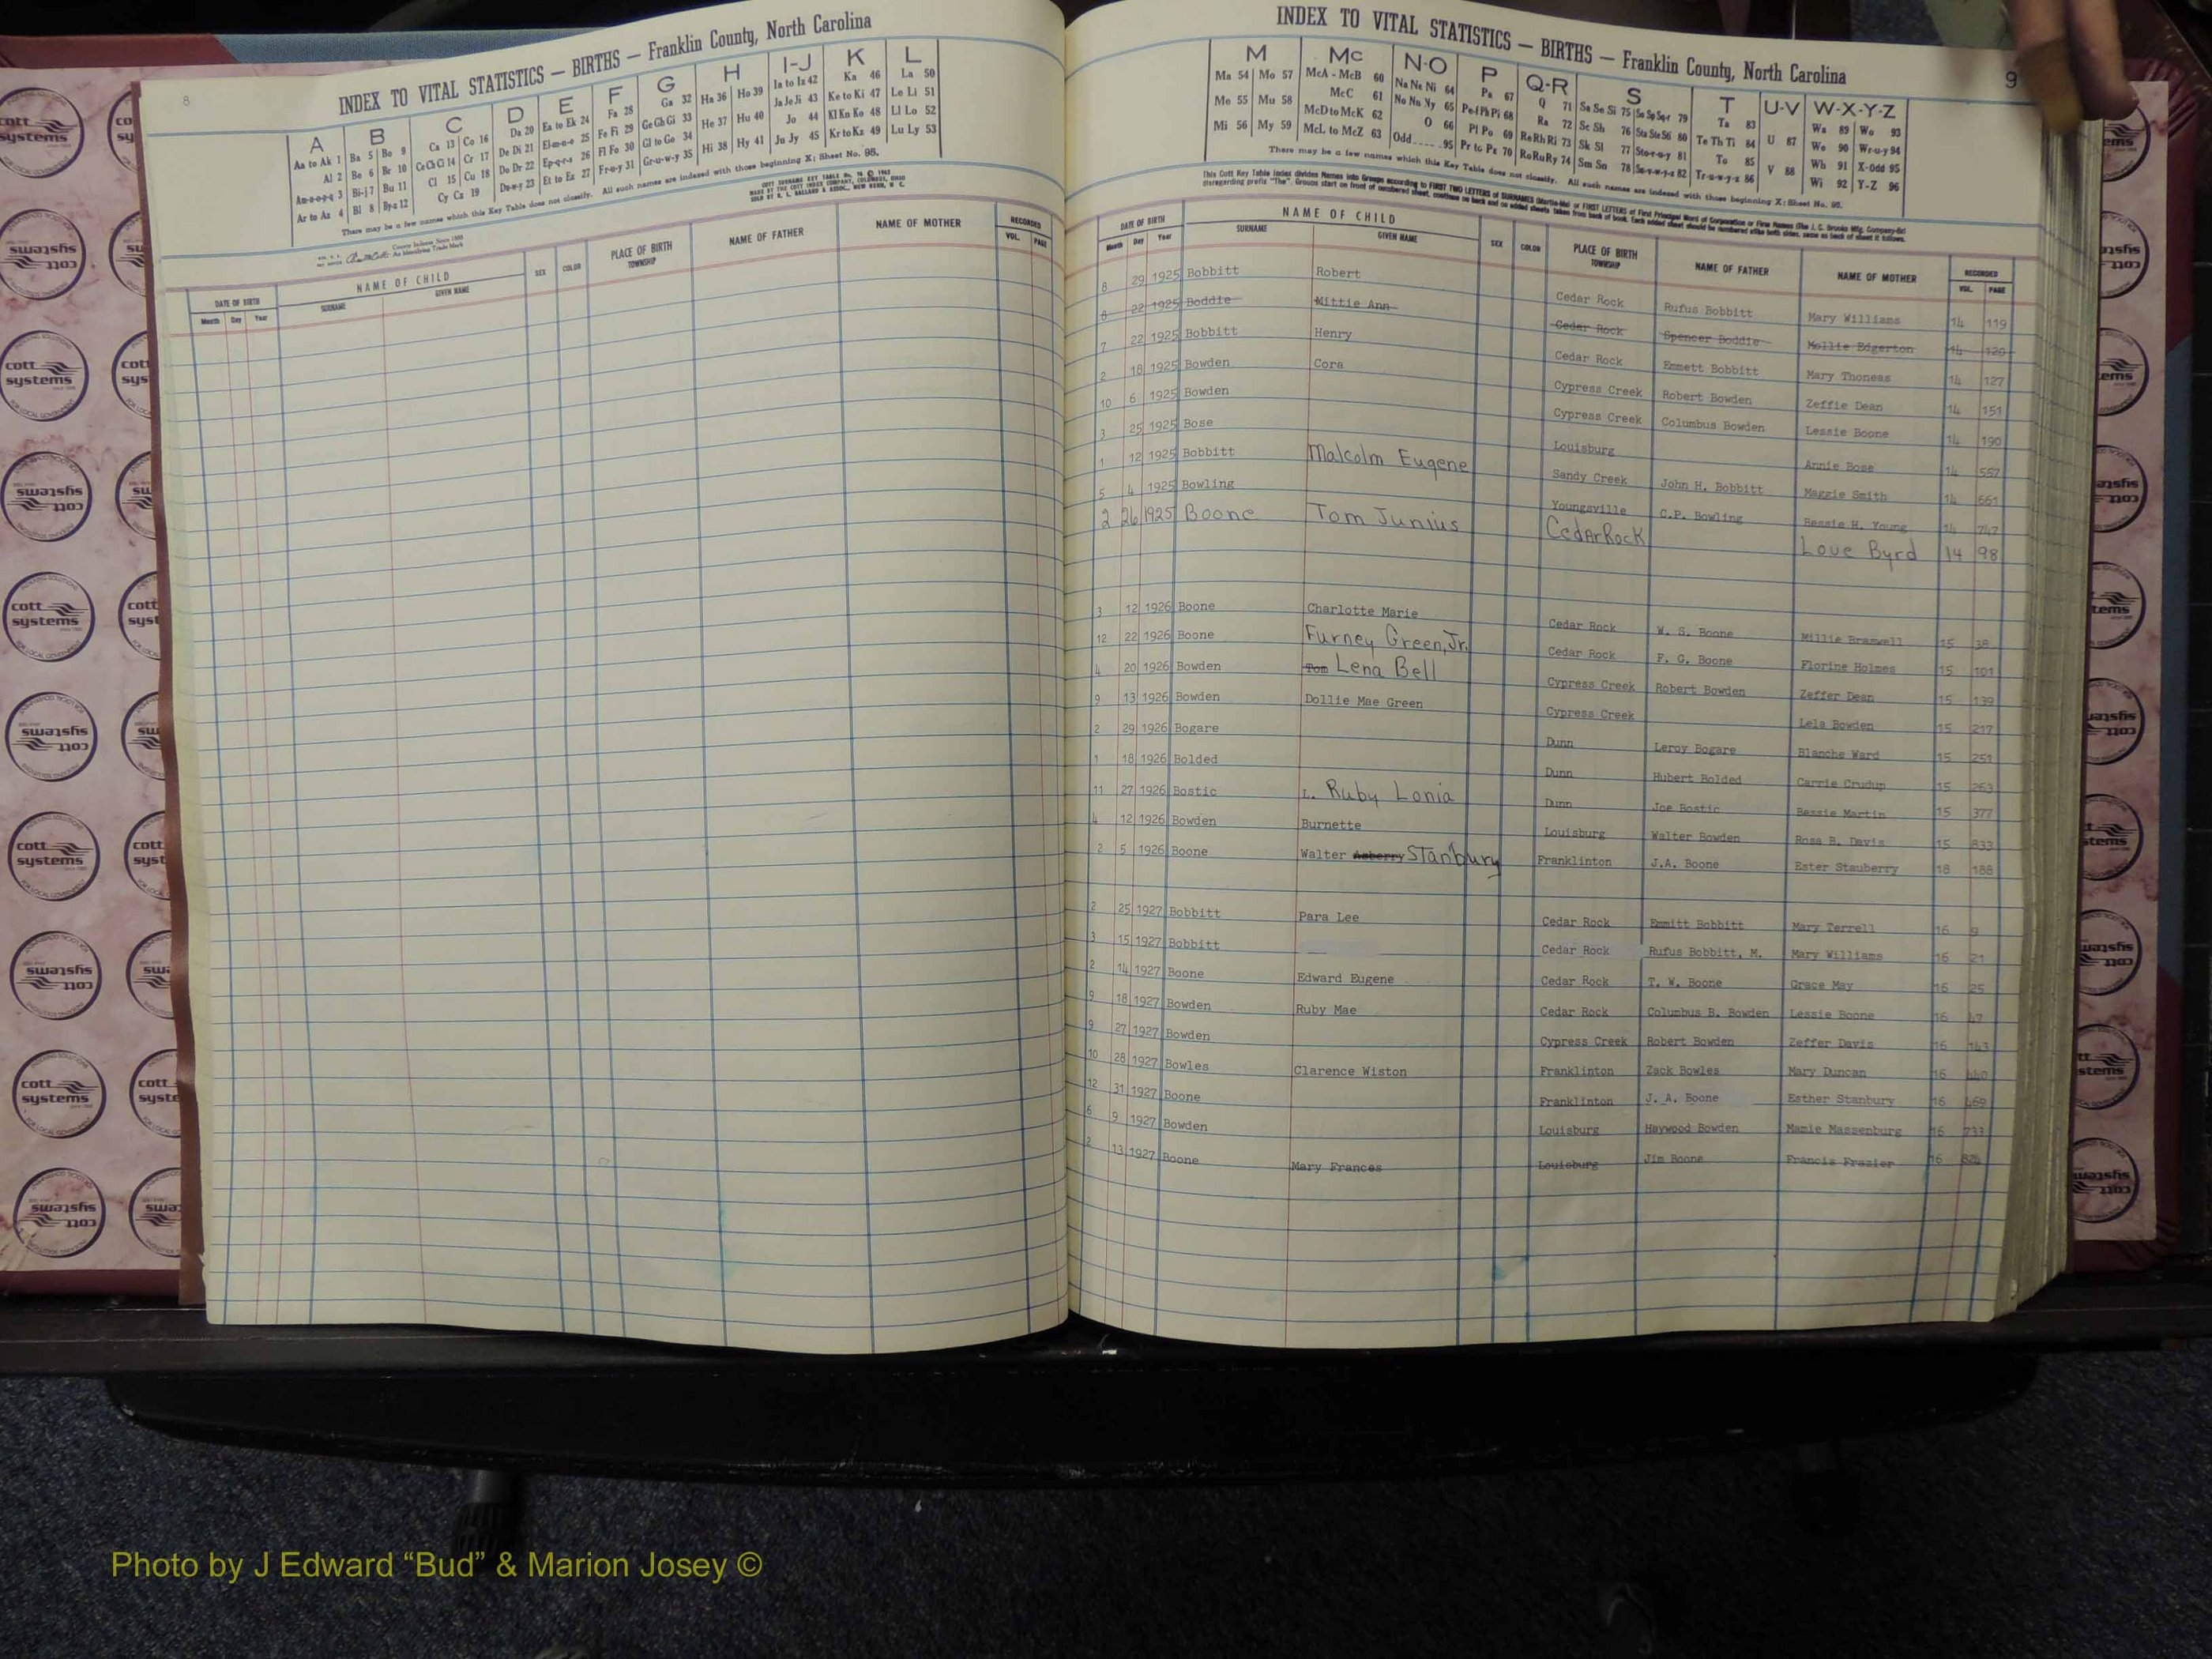 8
INDEX TO VITAL STATISTICS — BIRTHS — Franklin County, North Carolina
A B C D E F G H I-J K L
Aa to Ak 1 Ba 5 Bo 9 Ca 13 Co 16 Da 20 Ea to Ek 24 Fa 28 Ga 32 Ha 36 Ho 39 Ia to Iz 42 Ka 46 La 50
Al 2 Be 6 Br 10 Ce Ch Ci 14 Cr 17 De Di 21 El-m-n-o 25 Fe Fi 29 Ge Gh Gi 33 He 37 Hu 40 Ja Je Ji 43 Ke to Ki 47 Le Li 51
Am-n-o-p-q 3 Bi-j 7 Bu 11 Cl 15 Cu 18 Do Dr 22 Ep-q-r-s 26 Fl Fo 30 Gl to Go 34 Hi 38 Hy 41 Jo 44 Kl Kn Ko 48 Ll Lo 52
Ar to Az 4 Bl 8 By-z 12 Cy Cz 19 Du-w-y 23 Et to Ez 27 Fr-u-y 31 Gr-u-w-y 35 Ju Jy 45 Kr to Kz 49 Lu Ly 53
There may be a few names which this Key Table does not classify. All such names are indexed with those beginning X; Sheet No. 95.
DATE OF BIRTH NAME OF CHILD SEX COLOR PLACE OF BIRTH NAME OF FATHER NAME OF MOTHER RECORDED
Month Day Year SURNAME GIVEN NAME TOWNSHIP VOL. PAGE
INDEX TO VITAL STATISTICS — BIRTHS — Franklin County, North Carolina 9
M Mc N-O P Q-R S T U-V W-X-Y-Z
Ma 54 Mo 57 McA - McB 60 Na Ne Ni 64 Pa 67 Q 71 Sa Se Si 75 So Sp Sq-r 79 Ta 83 U 87 Wa 89 Wo 93
Me 55 Mu 58 McC 61 No Nu Ny 65 Pe-f Ph Pi 68 Ra 72 Sc Sh 76 Sta Ste 80 Te Th Ti 84 We 90 Wr-u-y 94
Mi 56 My 59 McD to McK 62 O 66 Pl Po 69 Re Rh Ri 73 Sk Sl 77 Sto-r-u-y 81 To 85 V 88 Wh 91 X-Odd 95
McL to McZ 63 Odd 95 Pr to Pz 70 Ro Ru Ry 74 Sm Sn 78 Su-v-w-y-z 82 Tr-u-w-y-z 86 Wi 92 Y-Z 96
There may be a few names which this Key Table does not classify. All such names are indexed with those beginning X; Sheet No. 95.
DATE OF BIRTH NAME OF CHILD SEX COLOR PLACE OF BIRTH NAME OF FATHER NAME OF MOTHER RECORDED
Month Day Year SURNAME GIVEN NAME TOWNSHIP VOL. PAGE
8 29 1925 Bobbitt Robert Cedar Rock Rufus Bobbitt Mary Williams 14 119
8 22 1925 Boddie Mittie Ann Cedar Rock Spencer Boddie Mollie Edgerton 14 120
7 22 1925 Bobbitt Henry Cedar Rock Emmett Bobbitt Mary Thoneas 14 127
2 18 1925 Bowden Cora Cypress Creek Robert Bowden Zeffie Dean 14 151
10 6 1925 Bowden Cypress Creek Columbus Bowden Lessie Boone 14 190
3 25 1925 Bose Louisburg Annie Bose 14 557
1 12 1925 Bobbitt Malcolm Eugene Sandy Creek John H. Bobbitt Maggie Smith 14 661
5 4 1925 Bowling Youngsville C.P. Bowling Bessie H. Young 14 747
2 26 1925 Boone Tom Junius Cedar Rock Love Byrd 14 98
3 12 1926 Boone Charlotte Marie Cedar Rock W. S. Boone Millie Bramwell 15 38
12 22 1926 Boone Furney Green, Jr. Cedar Rock F. G. Boone Florine Holmes 15 101
4 20 1926 Bowden Tom Lena Bell Cypress Creek Robert Bowden Zeffer Dean 15 139
9 13 1926 Bowden Dollie Mae Green Cypress Creek Lela Bowden 15 217
2 29 1926 Bogare Dunn Leroy Bogare Blanche Ward 15 251
1 18 1926 Bolded Dunn Hubert Bolded Carrie Crudup 15 263
11 27 1926 Bostic L. Ruby Lonia Dunn Joe Bostic Bessie Martin 15 377
4 12 1926 Bowden Burnette Louisburg Walter Bowden Rosa B. Davis 15 833
2 5 1926 Boone Walter Asberry Stanbury Franklinton J.A. Boone Ester Stauberry 18 188
2 25 1927 Bobbitt Para Lee Cedar Rock Emmitt Bobbitt Mary Terrell 16 9
3 15 1927 Bobbitt Cedar Rock Rufus Bobbitt, M. Mary Williams 16 21
2 14 1927 Boone Edward Eugene Cedar Rock T. W. Boone Grace May 16 25
9 18 1927 Bowden Ruby Mae Cedar Rock Columbus B. Bowden Lessie Boone 16 47
9 27 1927 Bowden Cypress Creek Robert Bowden Zeffer Davis 16 143
10 28 1927 Bowles Clarence Wiston Franklinton Zack Bowles Mary Duncan 16 440
12 31 1927 Boone Franklinton J. A. Boone Esther Stanbury 16 469
6 9 1927 Bowden Louisburg Haywood Bowden Mamie Massenburg 16 733
2 13 1927 Boone Mary Frances Louisburg Jim Boone Francis Frazier 16 824
cott systems
Photo by J Edward “Bud” & Marion Josey ©